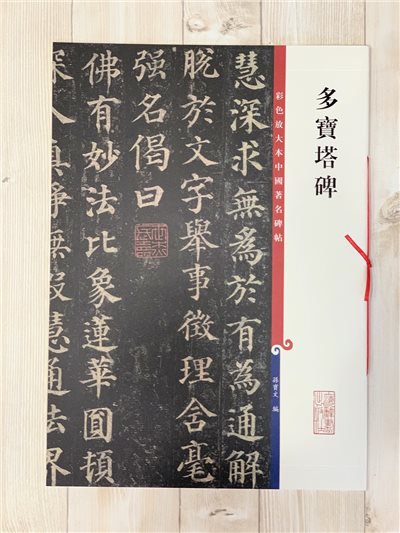 多寶塔碑
彩色放大本中國著名碑帖
孫寶文 編
慧深求無為於有為通解
脫於文字舉事徵理含毫
强名偈曰
佛有妙法比象蓮華圓頓
深入真淨無假慧通法界